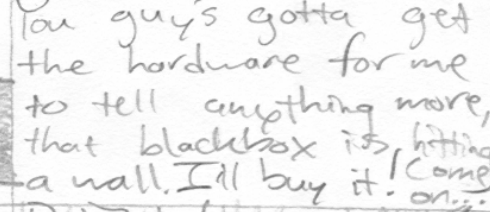 You guy's gotta get
the hardware for me
to tell anything more,
that blackbox is, hitting
a wall. I'll buy it! Come
on...?